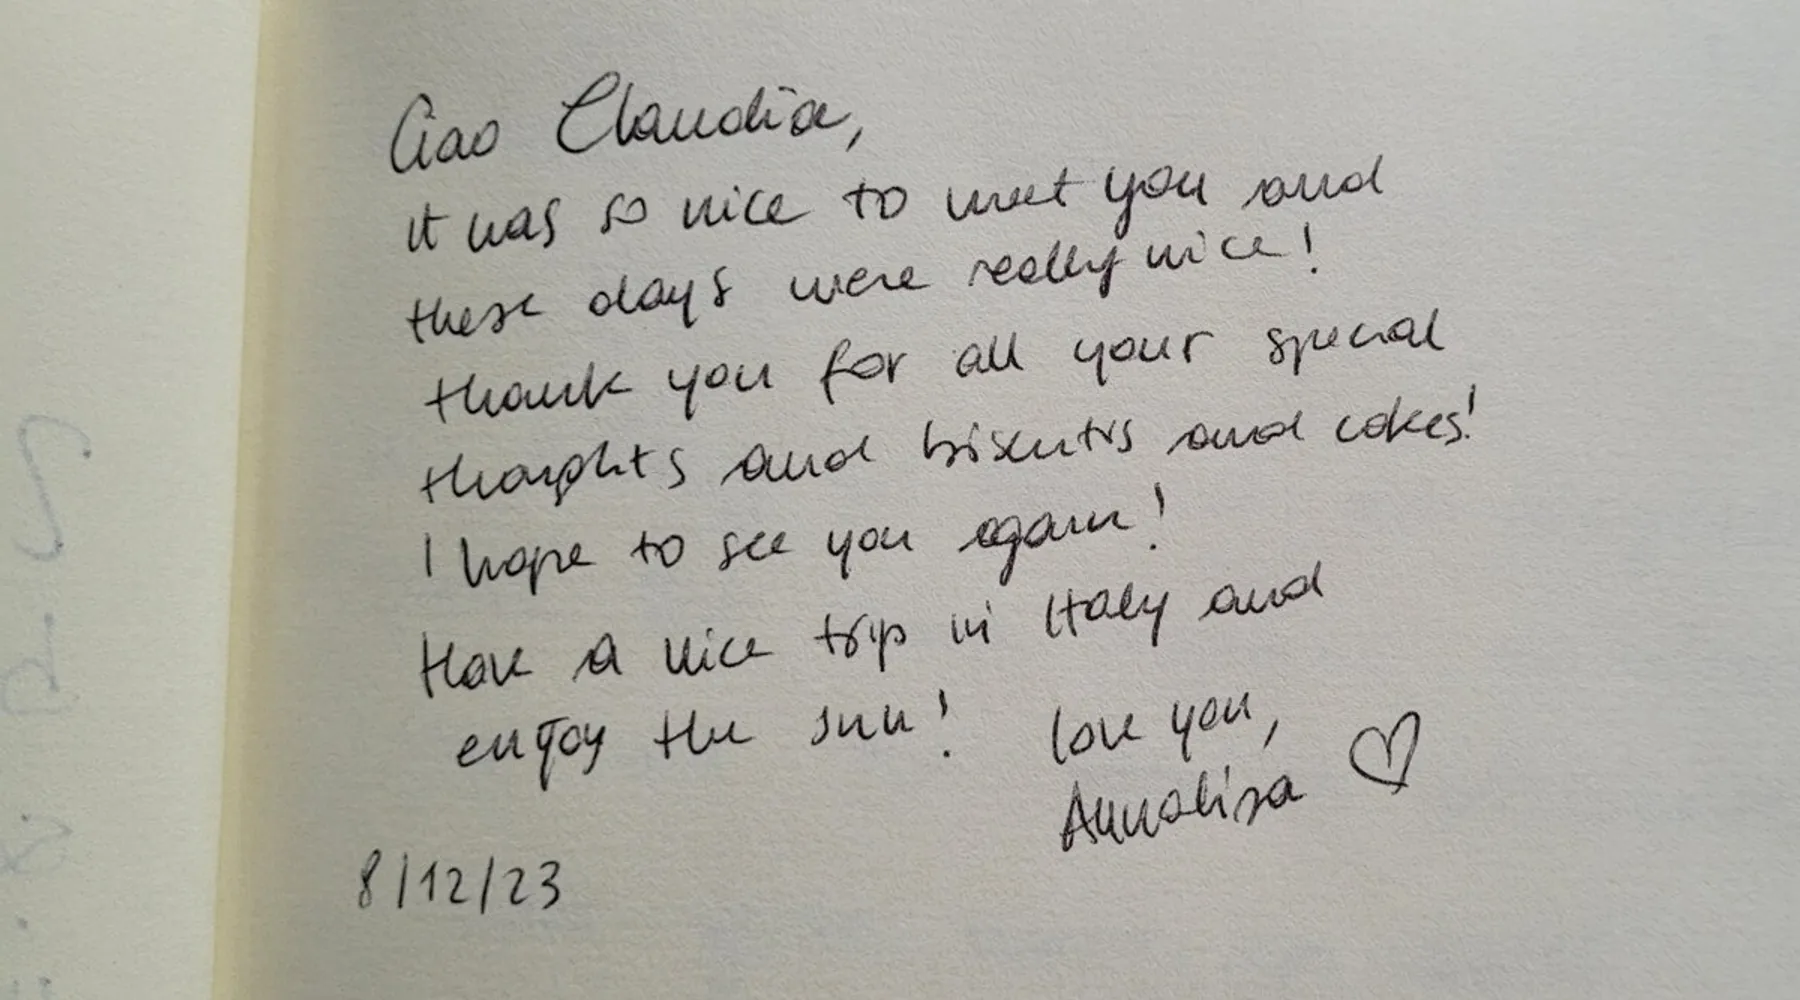 Ciao Claudia,
it was so nice to meet you and
these days were really nice!
thank you for all your special
thoughts and biscuits and cakes!
I hope to see you again!
Have a nice trip in Italy and
enjoy the sun!
love you,
Annalisa ♡
8/12/23